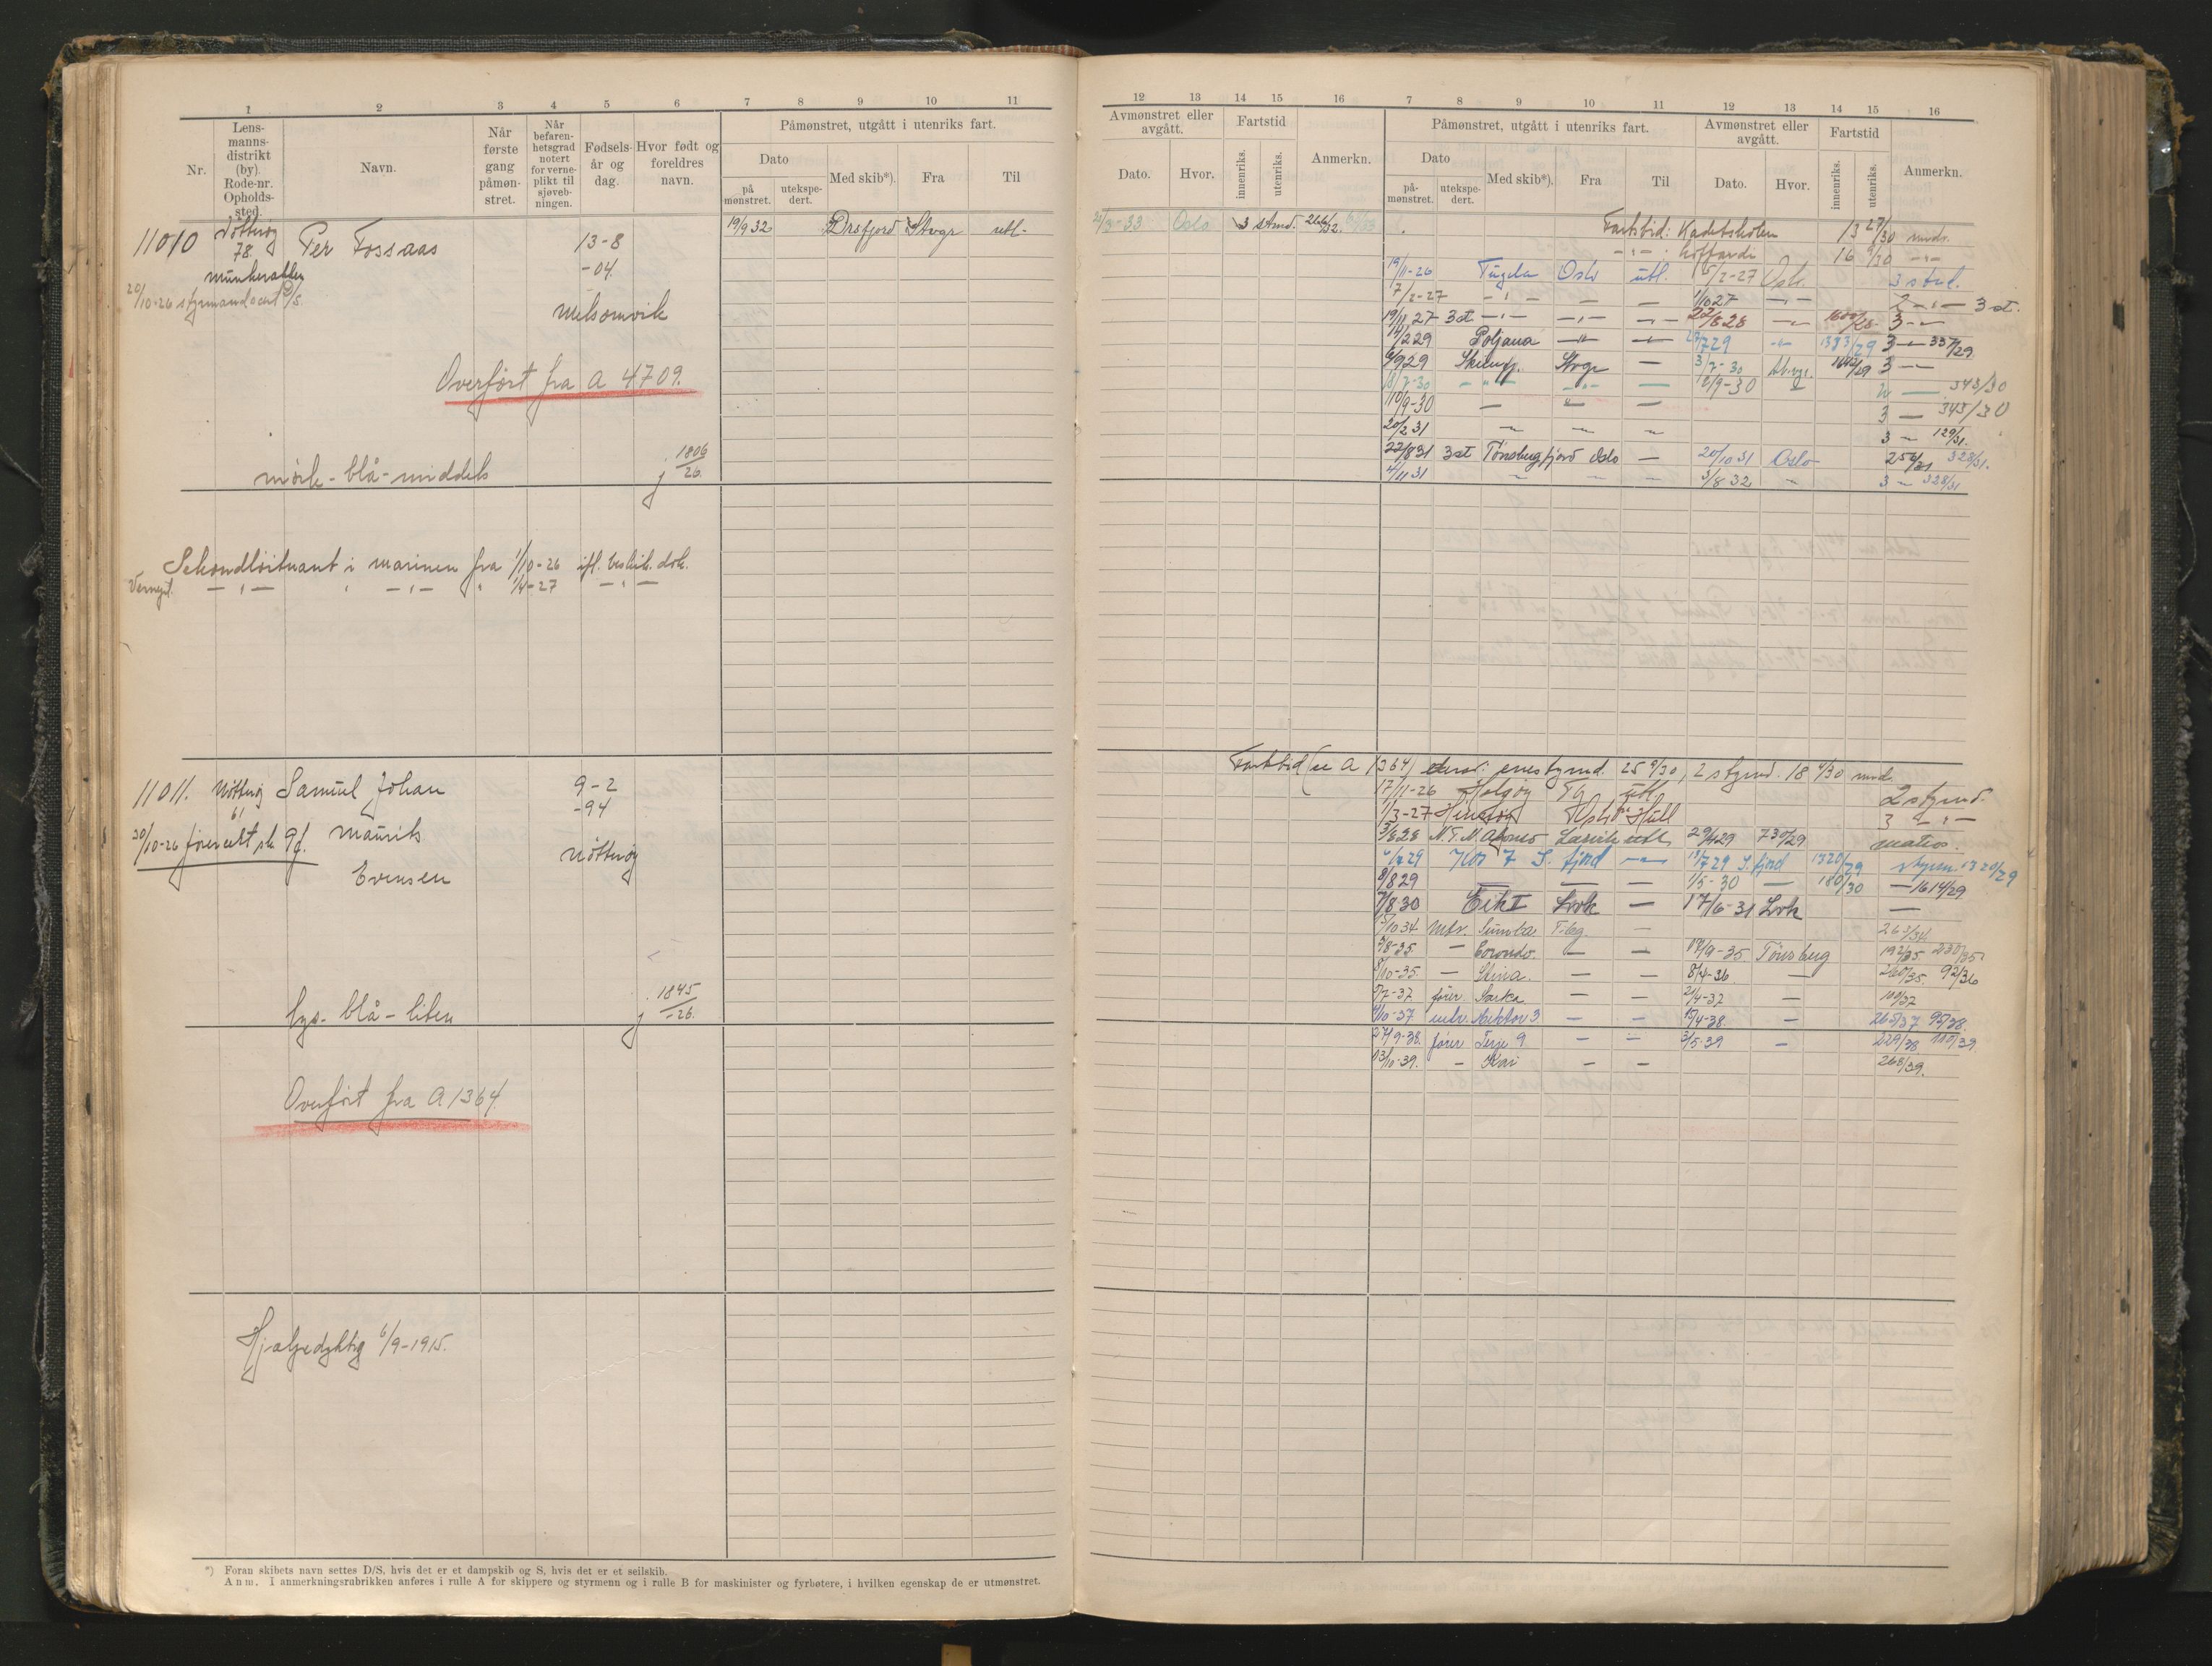 1 2 3 4 5 6 7 8 9 10 11
Nr.
Lens-
manns-
distrikt
(by).
Rode-nr.
Opholds-
sted.
Navn.
Når
første
gang
påmøn-
stret.
Når
befaren-
hetsgrad
notert
for verne-
plikt til
sjøveb-
ningen.
Fødsels-
år og
dag.
Hvor født og
foreldres
navn.
Påmønstret, utgått i utenriks fart.
Dato
på
mønstret.
utekspe-
dert.
Med skib*).
Fra
Til
11010 Nøtterøy
78. Per Fossaas 13-8
-04.
19/9 32 Drsfjord Stvgr utl-
20/10-26
Melsomvik
Overført fra A 4709.
mörk-blå-middels j 1806/26.
Sekondløitnant i marinen fra 1/10-26 ifl. beskik. dok.
Vernepl. — „ — „ — „ — „ 1/4-27 — „ —
11011. Nøtterøy Samuel Johan 9-2
61 Maurits -94
30/10-26
Evensen Nøtterøy
lys-blå-liten j 1845/-26.
Overført fra A 1364.
Hjælpedyktig 6/9-1915.
*) Foran skibets navn settes D/S, hvis det er et dampskib og S, hvis det er et seilskib.
Anm. I anmerkningsrubrikken anføres i rulle A for skippere og styrmenn og i rulle B for maskinister og fyrbøtere, i hvilken egenskap de er utmønstret.
12 13 14 15 16 7 8 9 10 11 12 13 14 15 16
Avmønstret eller
avgått.
Dato.
Hvor.
Fartstid
innenriks.
utenriks.
Anmerkn.
Påmønstret, utgått i utenriks fart.
Dato
på-
mønstret.
utekspe-
dert.
Med skib*).
Fra
Til
Avmønstret eller
avgått.
Dato.
Hvor.
Fartstid
innenriks.
utenriks.
Anmerkn.
21/3-33 Oslo 3 stmd.
Fartstid: Kadetskolen 13 27/30 mnds.
koffardi 16 9/30 — „ —
19/11-26 Tugela Oslo utl. 5/2-27 Oslo 3 stm.
7/2-27 — „ — — — 1/10 27 — „ — 2 — „ — 3 st.
19/11 27 3 st — „ — — „ — — „ — 22/8 28 — „ — 3 — „ —
14/2 29 Poljana — „ — — 1383/29 3 — „ — 337/29
6/9 29 Stvgr — 3/7-30 3 — „ —
18/7-30 — „ — — „ — — 12/9-30 343/30
10/9-30 — — „ — — 3 — 343/30
20/2 31 — — — 3 — 129/31.
22/8 31 3 st Tønsbergfjord Oslo — 20/10 31 Oslo 328/31.
4/11 31 — — — 3/8 32 — 3 — 328/31
Fartstid (se A 1364) 25 9/30, 2 styrmd. 18 4/30 mnd.
17/11-26 Tbg utl. 2 styrmd.
1/3-27 Oslo Hull 3 — „ —
5/8 28 M.T. M. Alonso Larvik utl. 29/4 29 730/29. matros.
6/7 29 Kos 7 S. fjord — „ — 13/7 29 S. fjord 1320/29 styrm. 1320/29
8/8 29 — — — 1/5-30 — 180/30 — 1614/29
7/8 30 Eik I Lvk — 17/6-31 Lvk —
5/10 34 Mtr. Sumba Tbg. — 263/34.
5/8-35 — Corondo. — — 19/9-35 Tønsberg 192/35 230/35
8/10-35. — Stina. — — 8/4-36 — 260/35. 92/36
5/7-37 fører. Sarka — — 21/4-37 — 100/37
4/10-37 mtr. Hektor 3 — — 15/4-38. — 265/37 95/38.
27/9-38. fører Terje 9. — — 3/5-39 — 229/38 110/39.
13/10-39. — Kai — — 268/39.